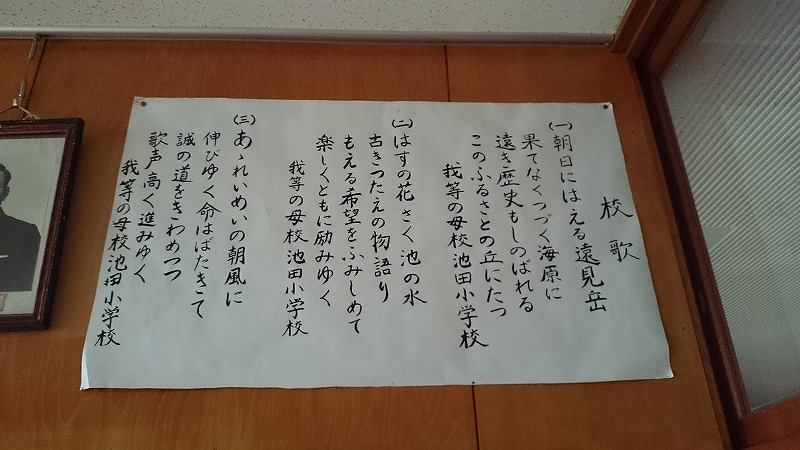 校歌
(一)朝日にはえる遠見岳
果てなくつづく海原に
遠き歴史もしのばれる
このふるさとの丘にたつ
我等の母校池田小学校
(二)はすの花さく池の水
古きつたえの物語り
もえる希望をふみしめて
楽しくともに励みゆく
我等の母校池田小学校
(三)あゝれいめいの朝風に
伸びゆく命はばたきて
誠の道をきわめつつ
歌声高く進みゆく
我等の母校池田小学校